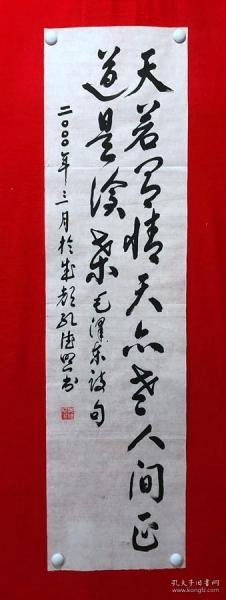 天若有情天亦老人间正
道是沧桑毛泽东诗句
二〇〇〇年三月于成都孔德熙书
孔夫子旧书网
kongfz.com